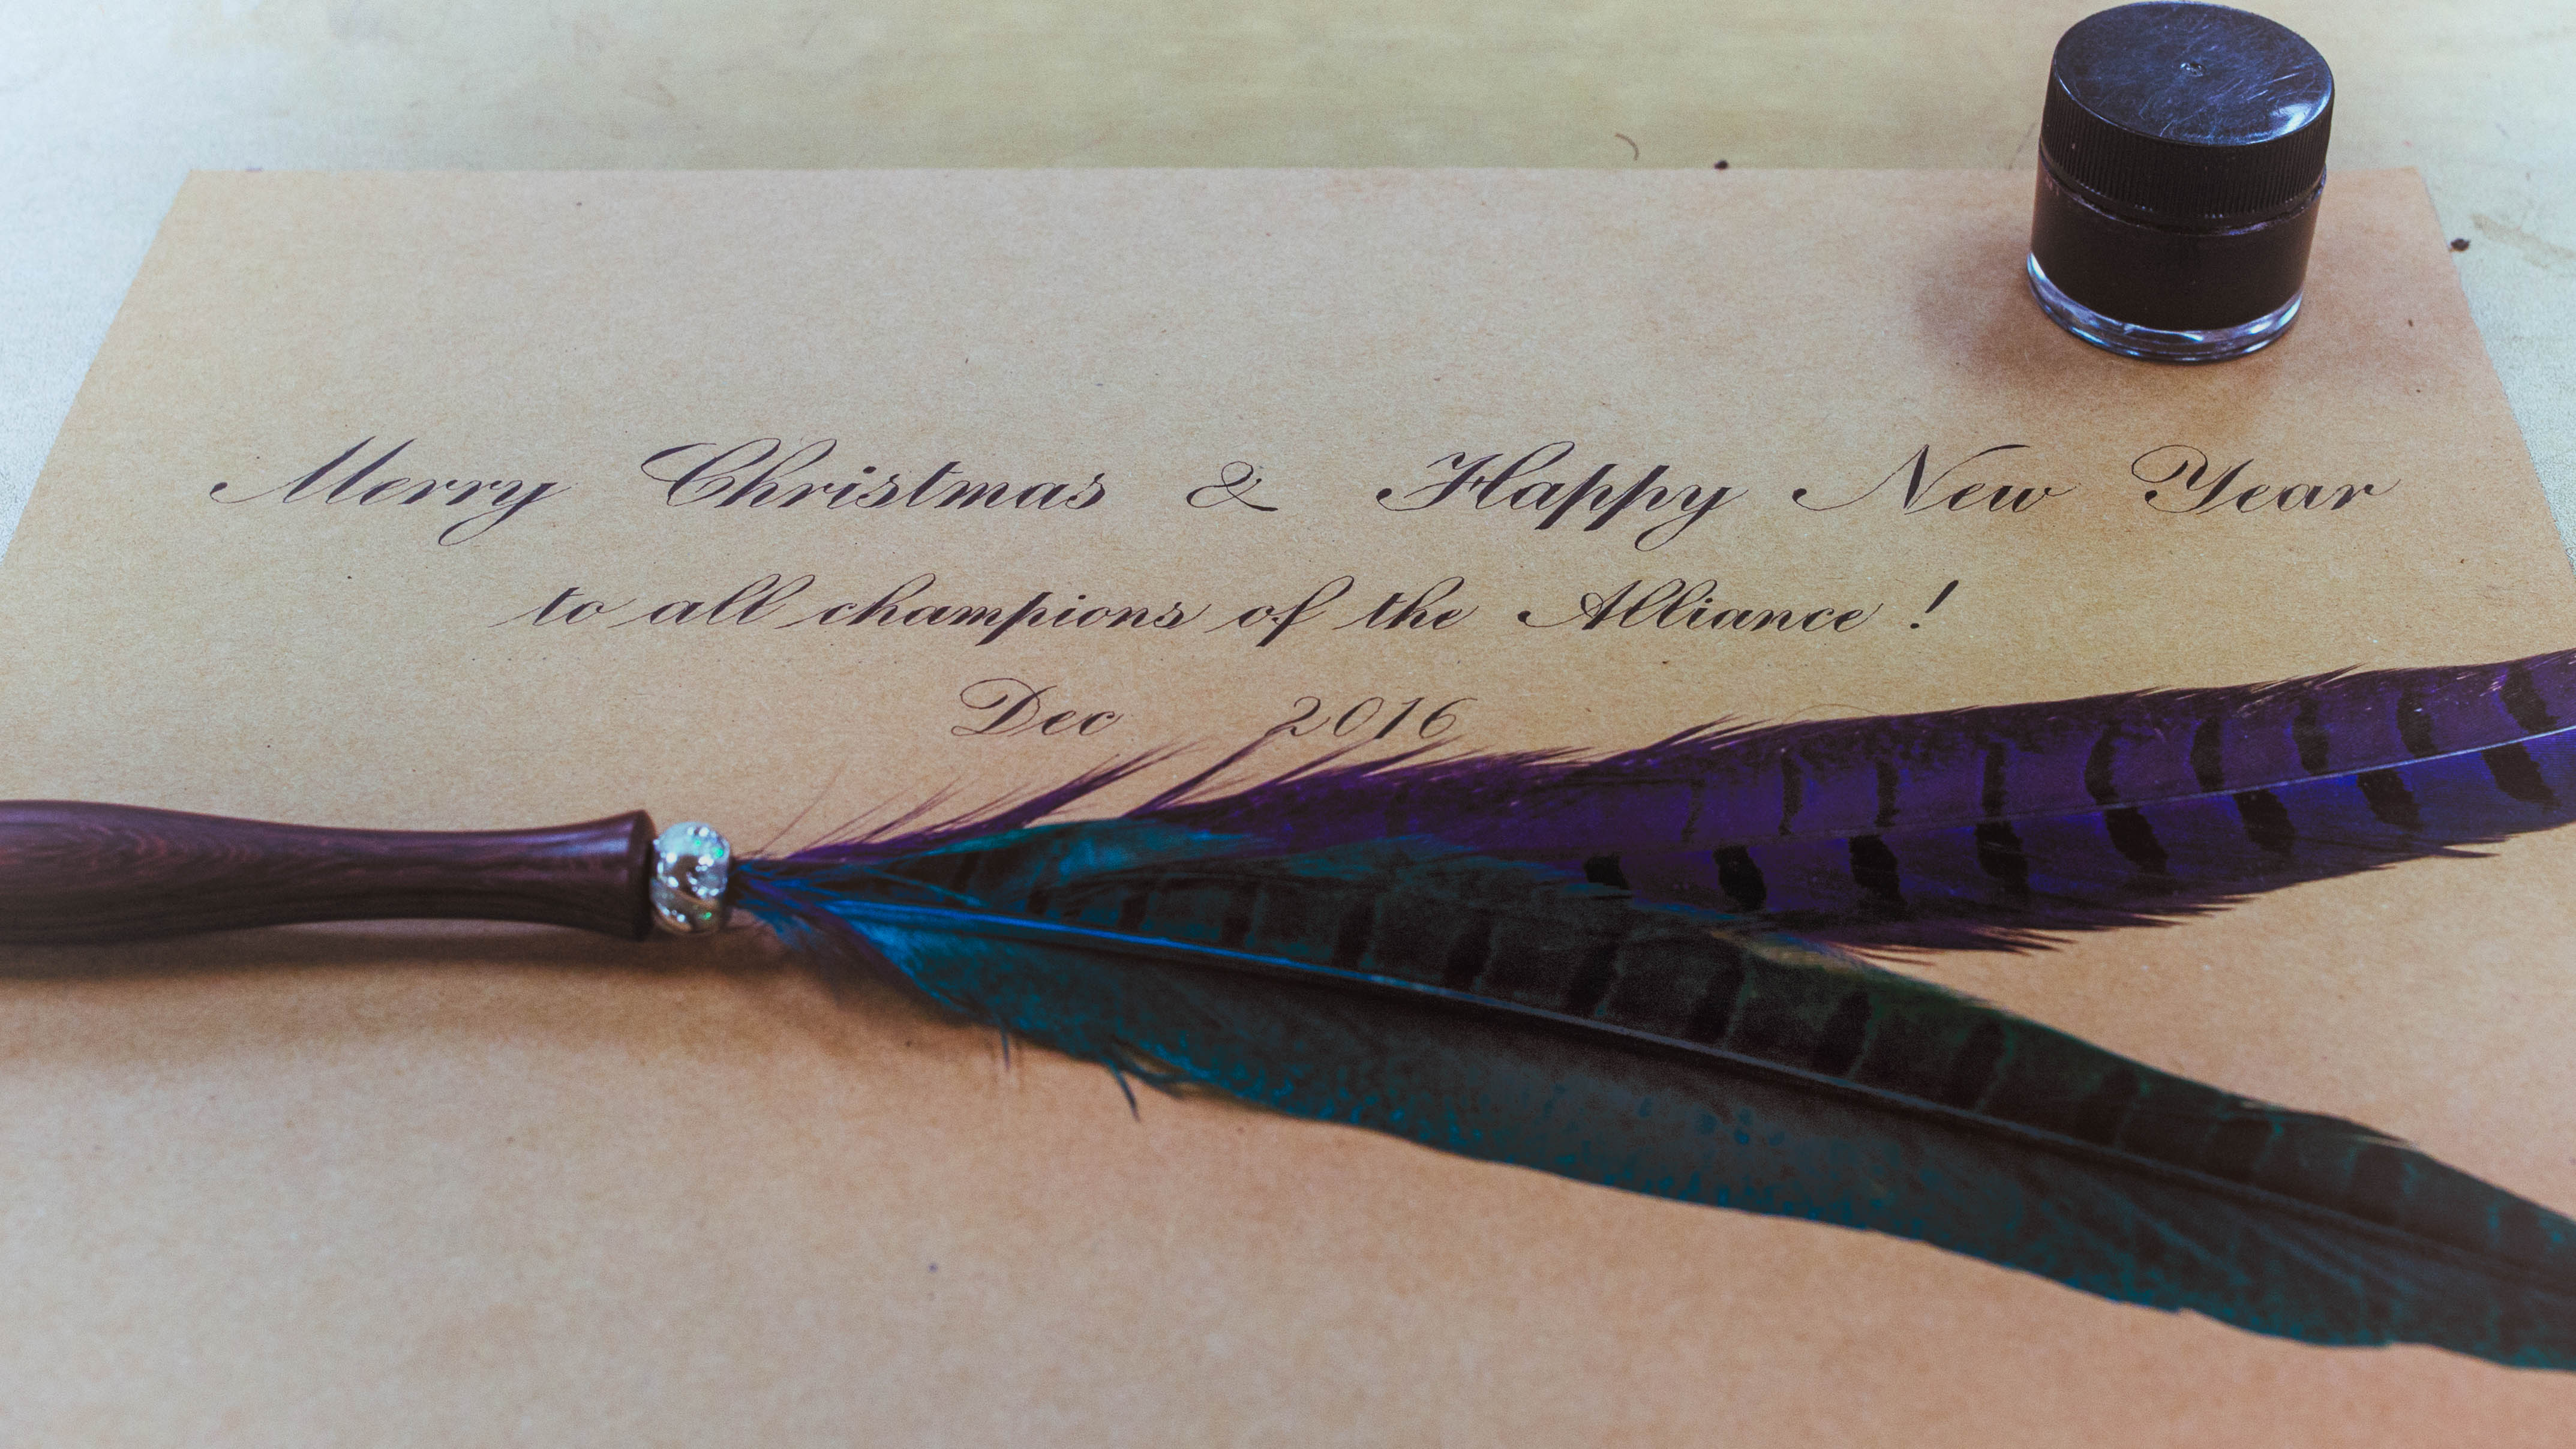 Merry Christmas & Happy New Year
to all champions of the Alliance !
Dec 2016